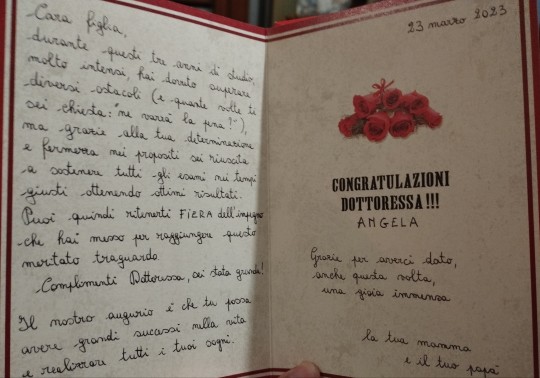 Cara figlia,
durante questi tre anni di studio,
molto intensi, hai dovuto superare
diversi ostacoli (e quante volte ti
sei chiesta: "ne varrà la pena?"),
ma grazie alla tua determinazione
e fermezza nei propositi sei riuscita
a sostenere tutti gli esami nei tempi
giusti ottenendo ottimi risultati.
Puoi quindi ritenerti FIERA dell'impegno
che hai messo per raggiungere questo
meritato traguardo
Complimenti Dottoressa, sei stata grande!
Il nostro augurio è che tu possa
avere grandi successi nella vita
e realizzare tutti i tuoi sogni.
23 marzo 2023
CONGRATULAZIONI
DOTTORESSA!!!
ANGELA
Grazie per averci dato,
anche questa volta,
una gioia immensa
la tua mamma
e il tuo papà